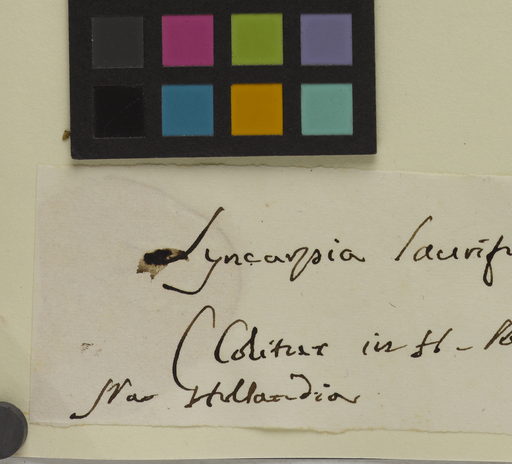 Syncarpia laurif
(Colitur in H_
Nov Hollandia